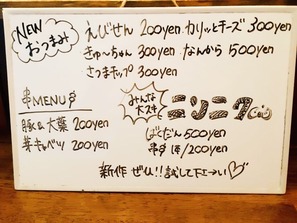 NEW おつまみ
えびせん 200yen カリッとチーズ 300yen
きゅ〜ちゃん 300yen なんから 500yen
さつまチップ 300yen
串MENU
豚&大葉 200yen
芽キャベツ 200yen
みんな大スキ
ニンニク
ばくだん 500yen
串 1本/200yen
新作 ぜひ!!試して下さ〜い